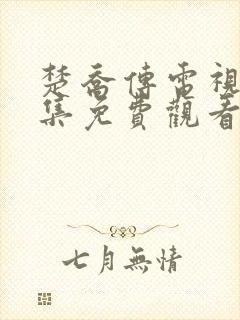 楚喬傳電視
集免費觀看
七月無情